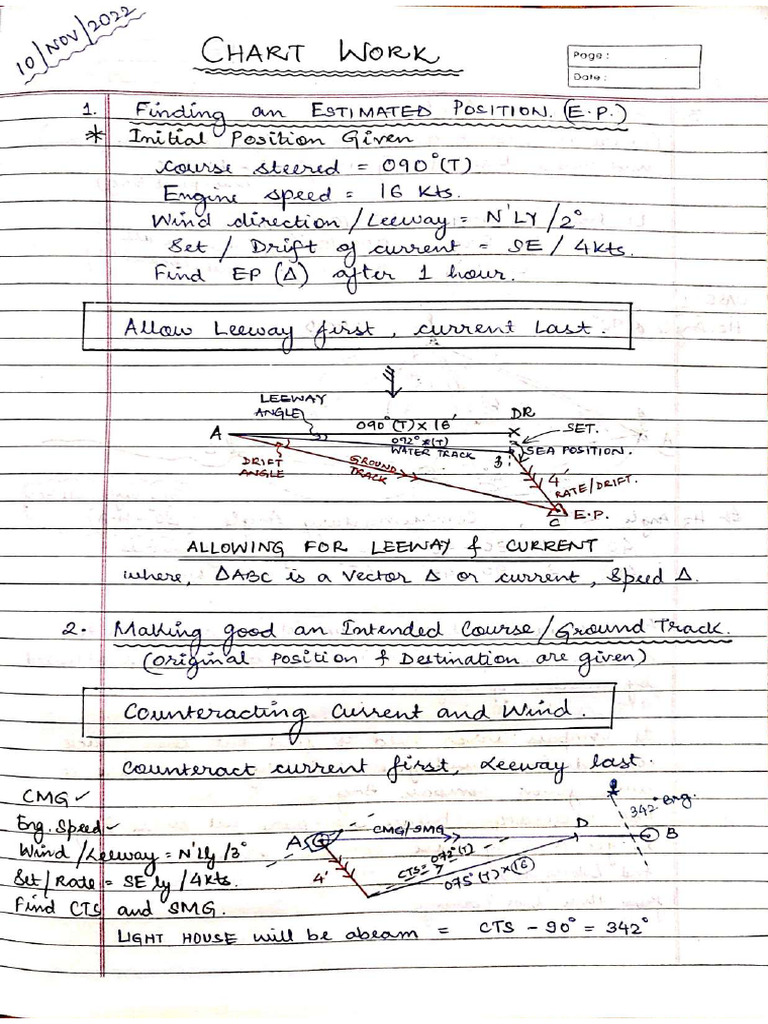 10/NOV/2022
CHART WORK
Page :
Date :
1. Finding an ESTIMATED POSITION. (E.P.)
* Initial Position Given
Course steered = 090°(T)
Engine speed = 16 kts.
Wind direction/Leeway = N'LY/2°
Set / Drift of current = SE / 4kts.
Find EP (Δ) after 1 hour.
Allow Leeway first, current Last.
LEEWAY
ANGLE
090°(T) x 16'
DR
SET.
A
092°(T)
WATER TRACK
B
SEA POSITION.
DRIFT
ANGLE
GROUND
TRACK
4'
RATE/DRIFT.
C
E.P.
ALLOWING FOR LEEWAY & CURRENT
where, ΔABC is a vector Δ or current, speed Δ.
2. Making good an Intended Course/Ground Track.
(original position & Destination are given)
Counteracting Current and Wind.
Counteract current first, Leeway last.
CMG ✓
Eng. Speed ✓
Wind/Leeway = N'Ly/3°
Set/Rate = SE ly/4kts.
Find CTS and SMG.
A
CMG/SMG
D
342° Brg.
B
4'
CTS = 072°(T)
075°(T) x 16
LIGHT HOUSE will be abeam = CTS - 90° = 342°